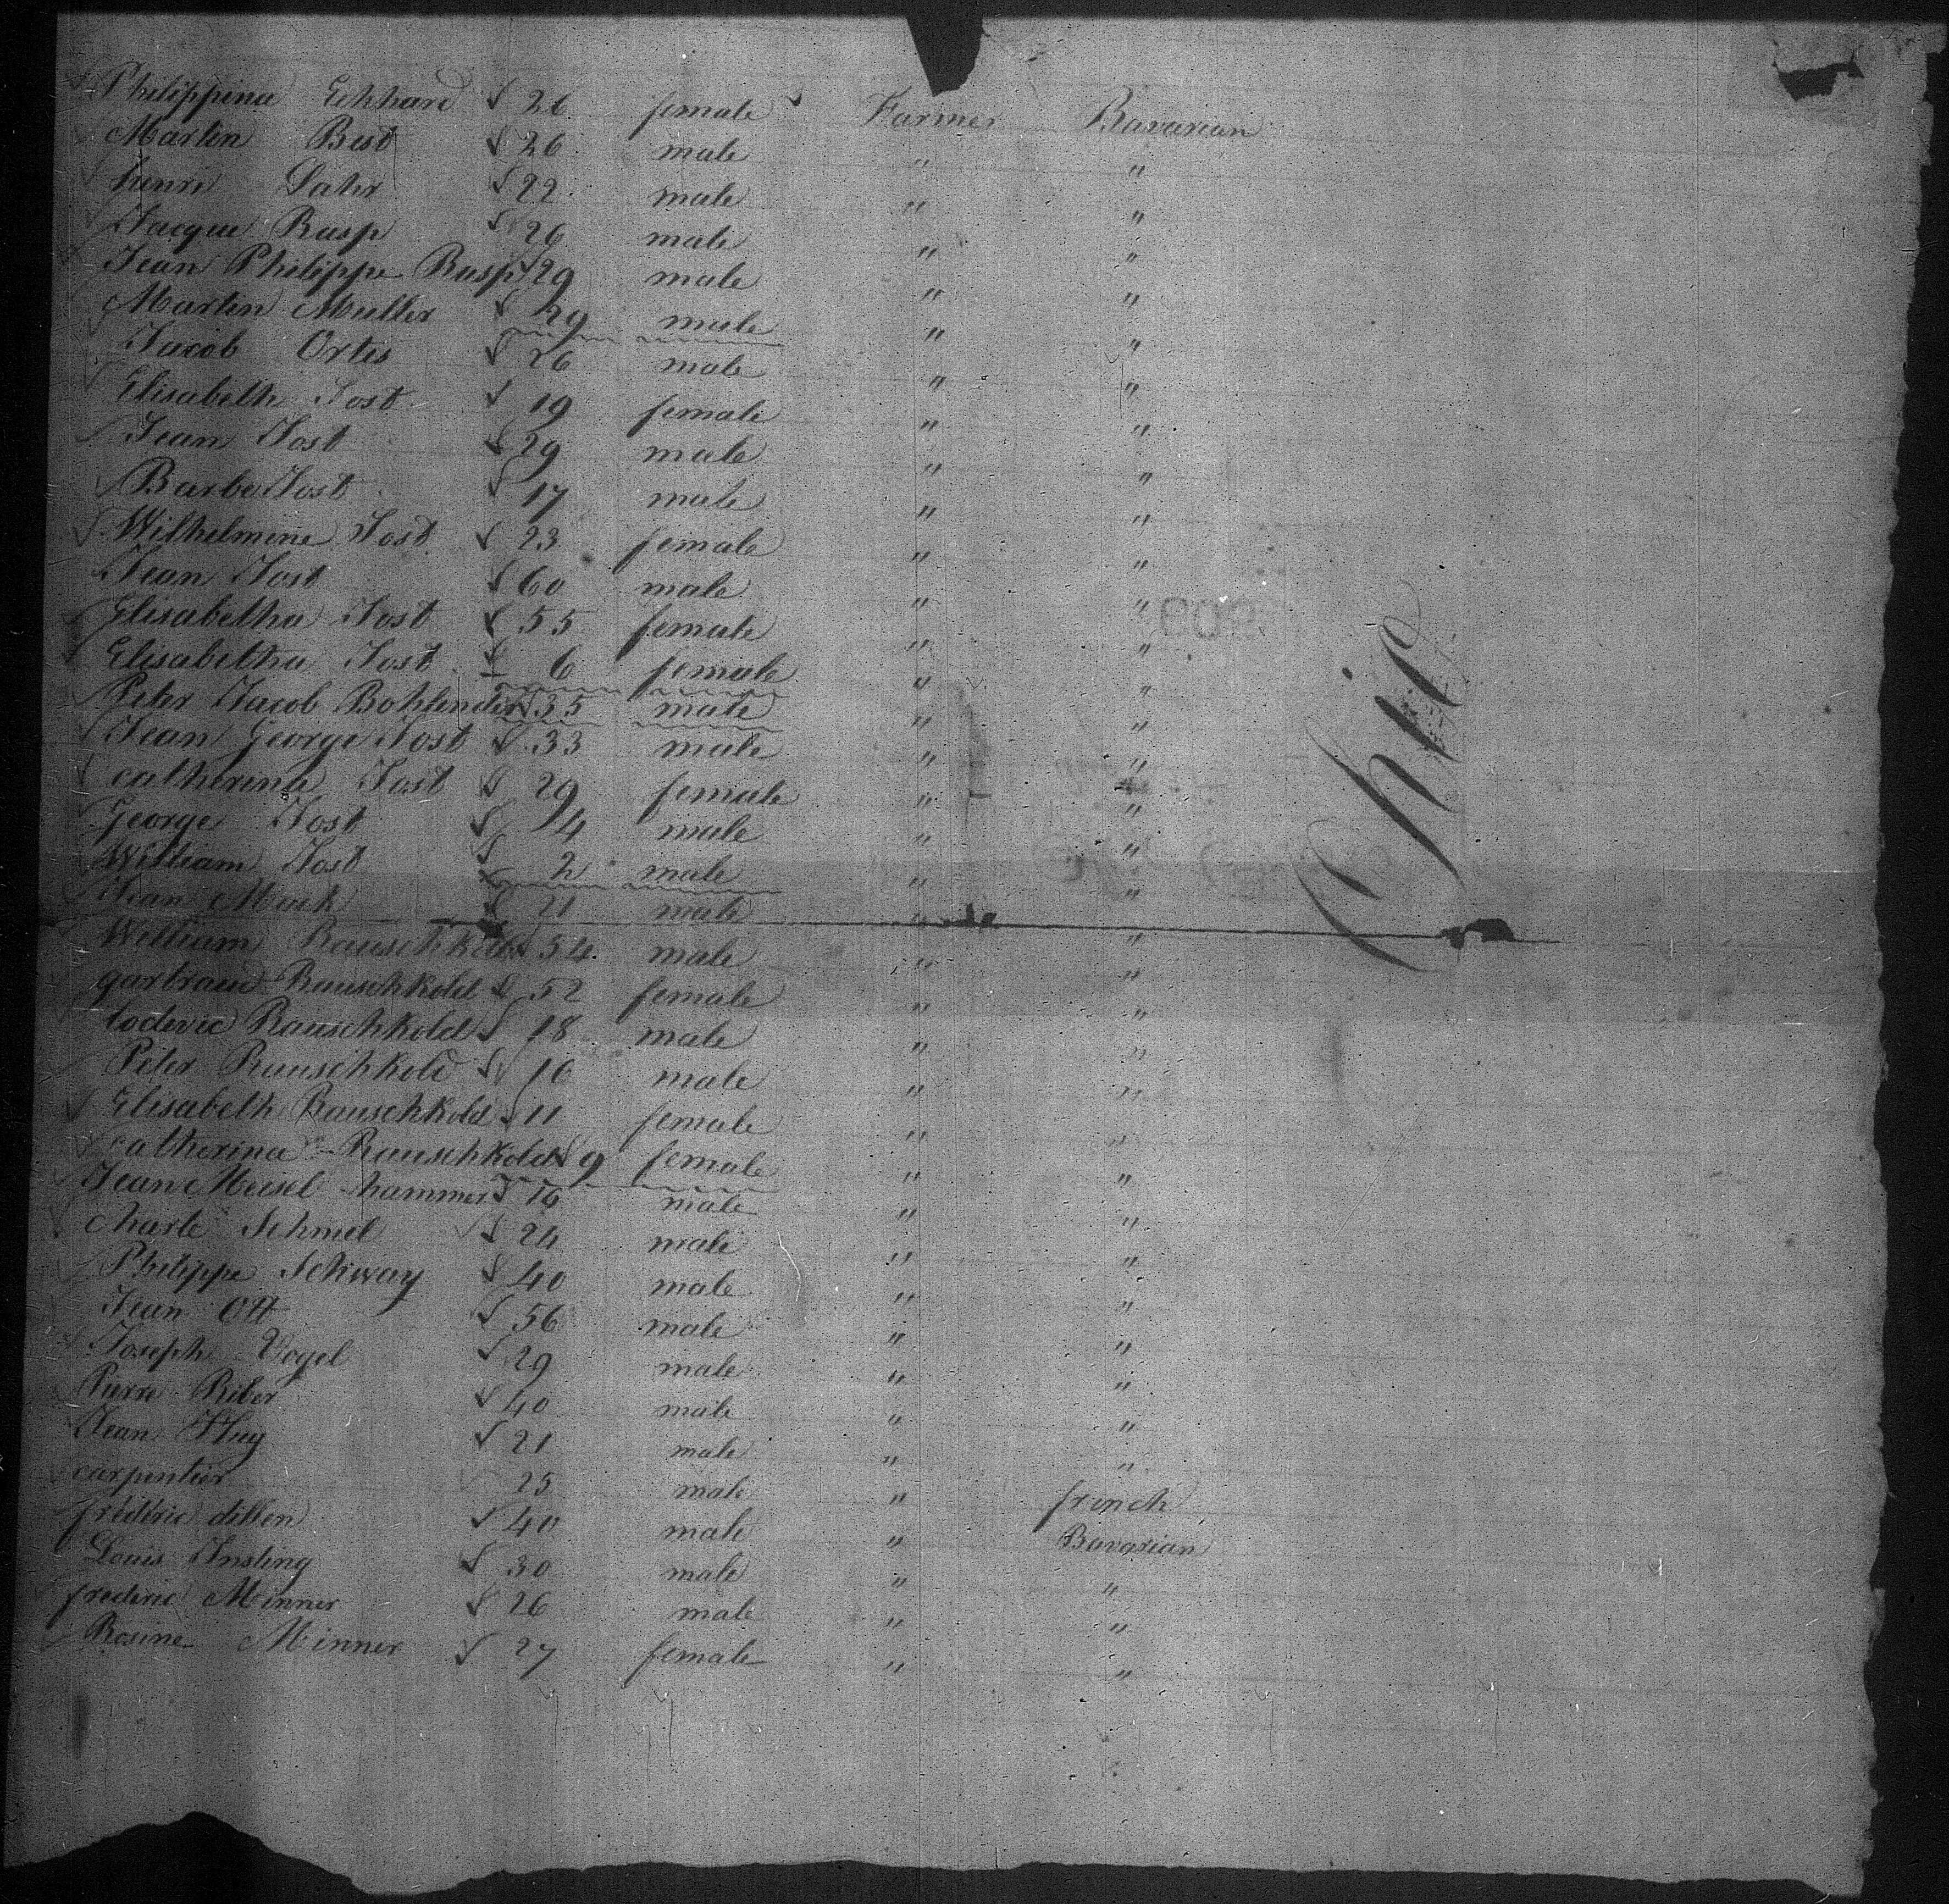 Philippina Eckhard 26 female Farmer Bavarian
Martin Best 26 male " "
henri Sater 22 male " "
Jacque Rusp 26 male " "
Jean Philippe Rusp 29 male " "
Martin Muller 29 male " "
Jacob Ortis 26 male " "
Elisabeth Jost 19 female " "
Jean Jost 29 male " "
Barbe Jost 17 male " "
Wilhelmine Jost 23 female " "
Jean Jost 60 male " "
Elisabetha Jost 55 female " "
Elisabetha Jost 6 female " "
Peter Jacob Bohlender 55 male " "
Jean George Jost 33 male " "
catherina Jost 29 female " "
George Jost 4 male " "
William Jost 2 male " "
Jean Muck 21 male " "
William Rauschkold 54 male " "
gartraud Rauschkold 52 female " "
lodevic Rauschkold 18 male " "
Peter Rauschkold 16 male " "
Elisabeth Rauschkold 11 female " "
catherina Rauschkold 9 female " "
Jean Meisel hammer 16 male " "
charle Schmel 24 male " "
Philippe Schway 40 male " "
Jean Ott 56 male " "
Joseph Vogel 29 male " "
Pierre Riber 40 male " "
Jean Hug 21 male " "
carpentier 25 male " french
frederic dillen 40 male " Bavarian
Louis Insting 30 male " "
frederic Minner 26 male " "
Rosine Minner 27 female " "
Ohio